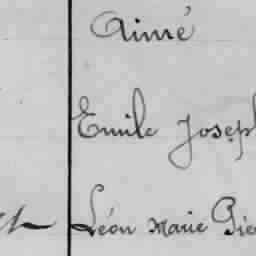 Aimé
Emile Joseph
Léon Marie